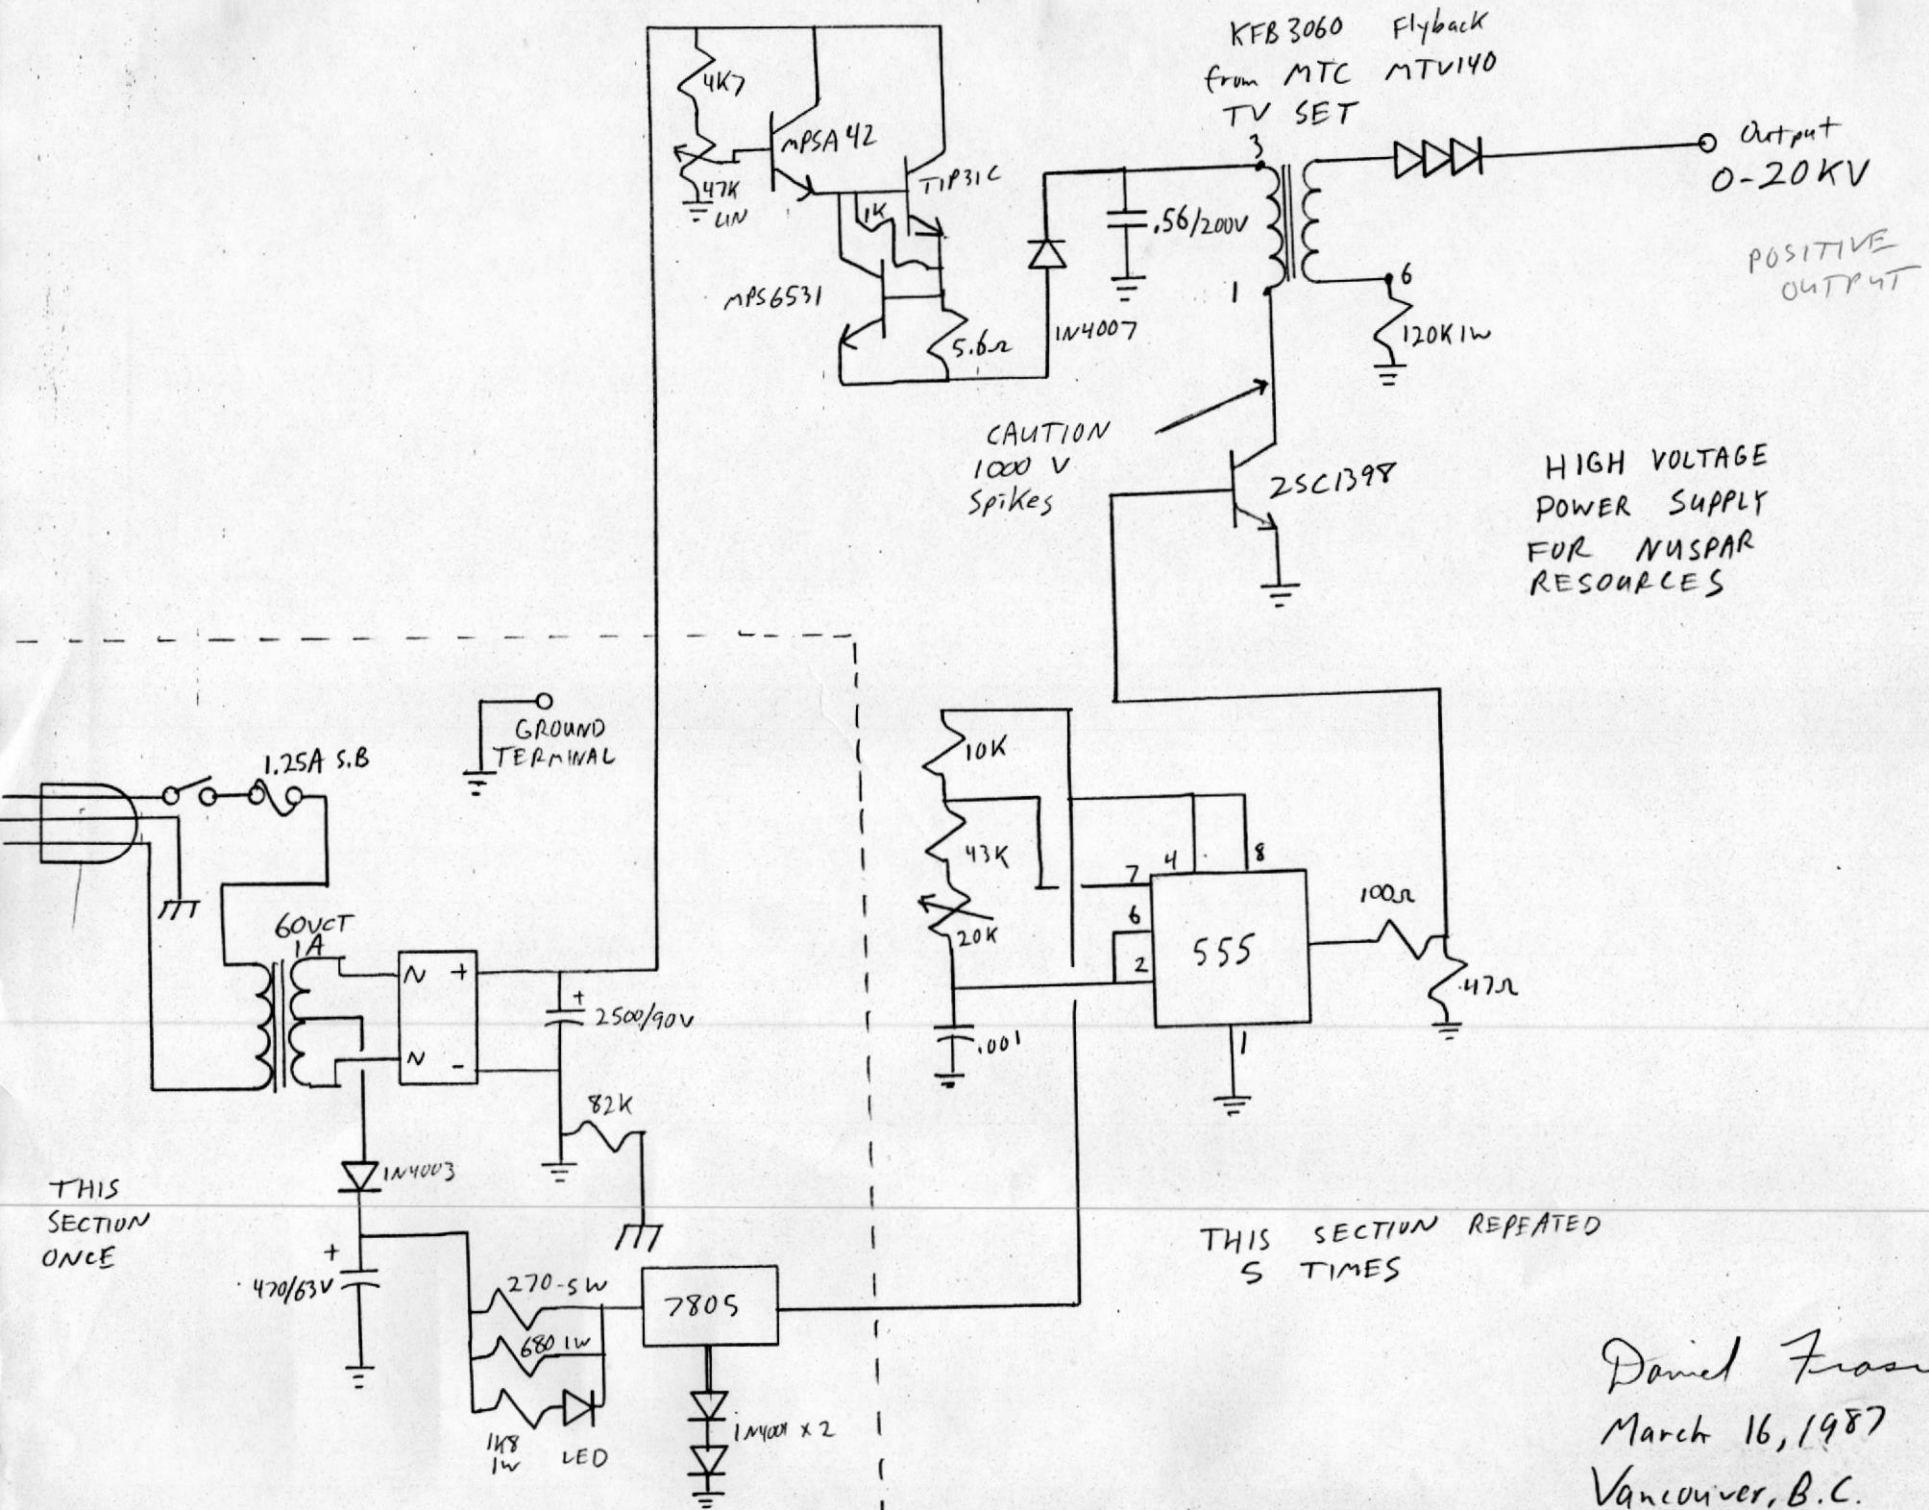 KFB3060 Flyback
from MTC MTV140
TV SET
4K7
MPSA42
47K
LIN
1K
TIP31C
MPS6531
5.6Ω
1N4007
.56/200V
3
1
6
120K 1W
Output
0-20KV
POSITIVE
OUTPUT
CAUTION
1000 V
Spikes
2SC1398
HIGH VOLTAGE
POWER SUPPLY
FOR NUSPAR
RESOURCES
GROUND
TERMINAL
1.25A S.B
60VCT
1A
N +
N -
+
2500/90V
82K
1N4003
THIS
SECTION
ONCE
+
470/63V
270-5W
680 1W
1K8
1W
LED
7805
1N4001 x 2
10K
43K
20K
.001
7
4
8
6
2
555
1
100Ω
47Ω
THIS SECTION REPEATED
5 TIMES
Daniel
March 16, 1987
Vancouver, B.C.